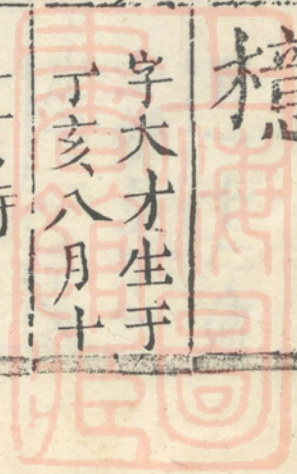 檍
字大才生于
丁亥八月十